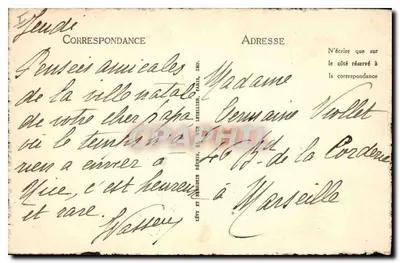 Jeudi
CORRESPONDANCE
Pensées amicales
de la ville natale
de votre cher papa
où le temps n'a
rien a envier à
Nice, c'est heureux
et rare.
ADRESSE
N'écrire que sur
le côté réservé à
la correspondance
Madame
Germaine Viollet
46 Bd de la Corderie
à
Marseille